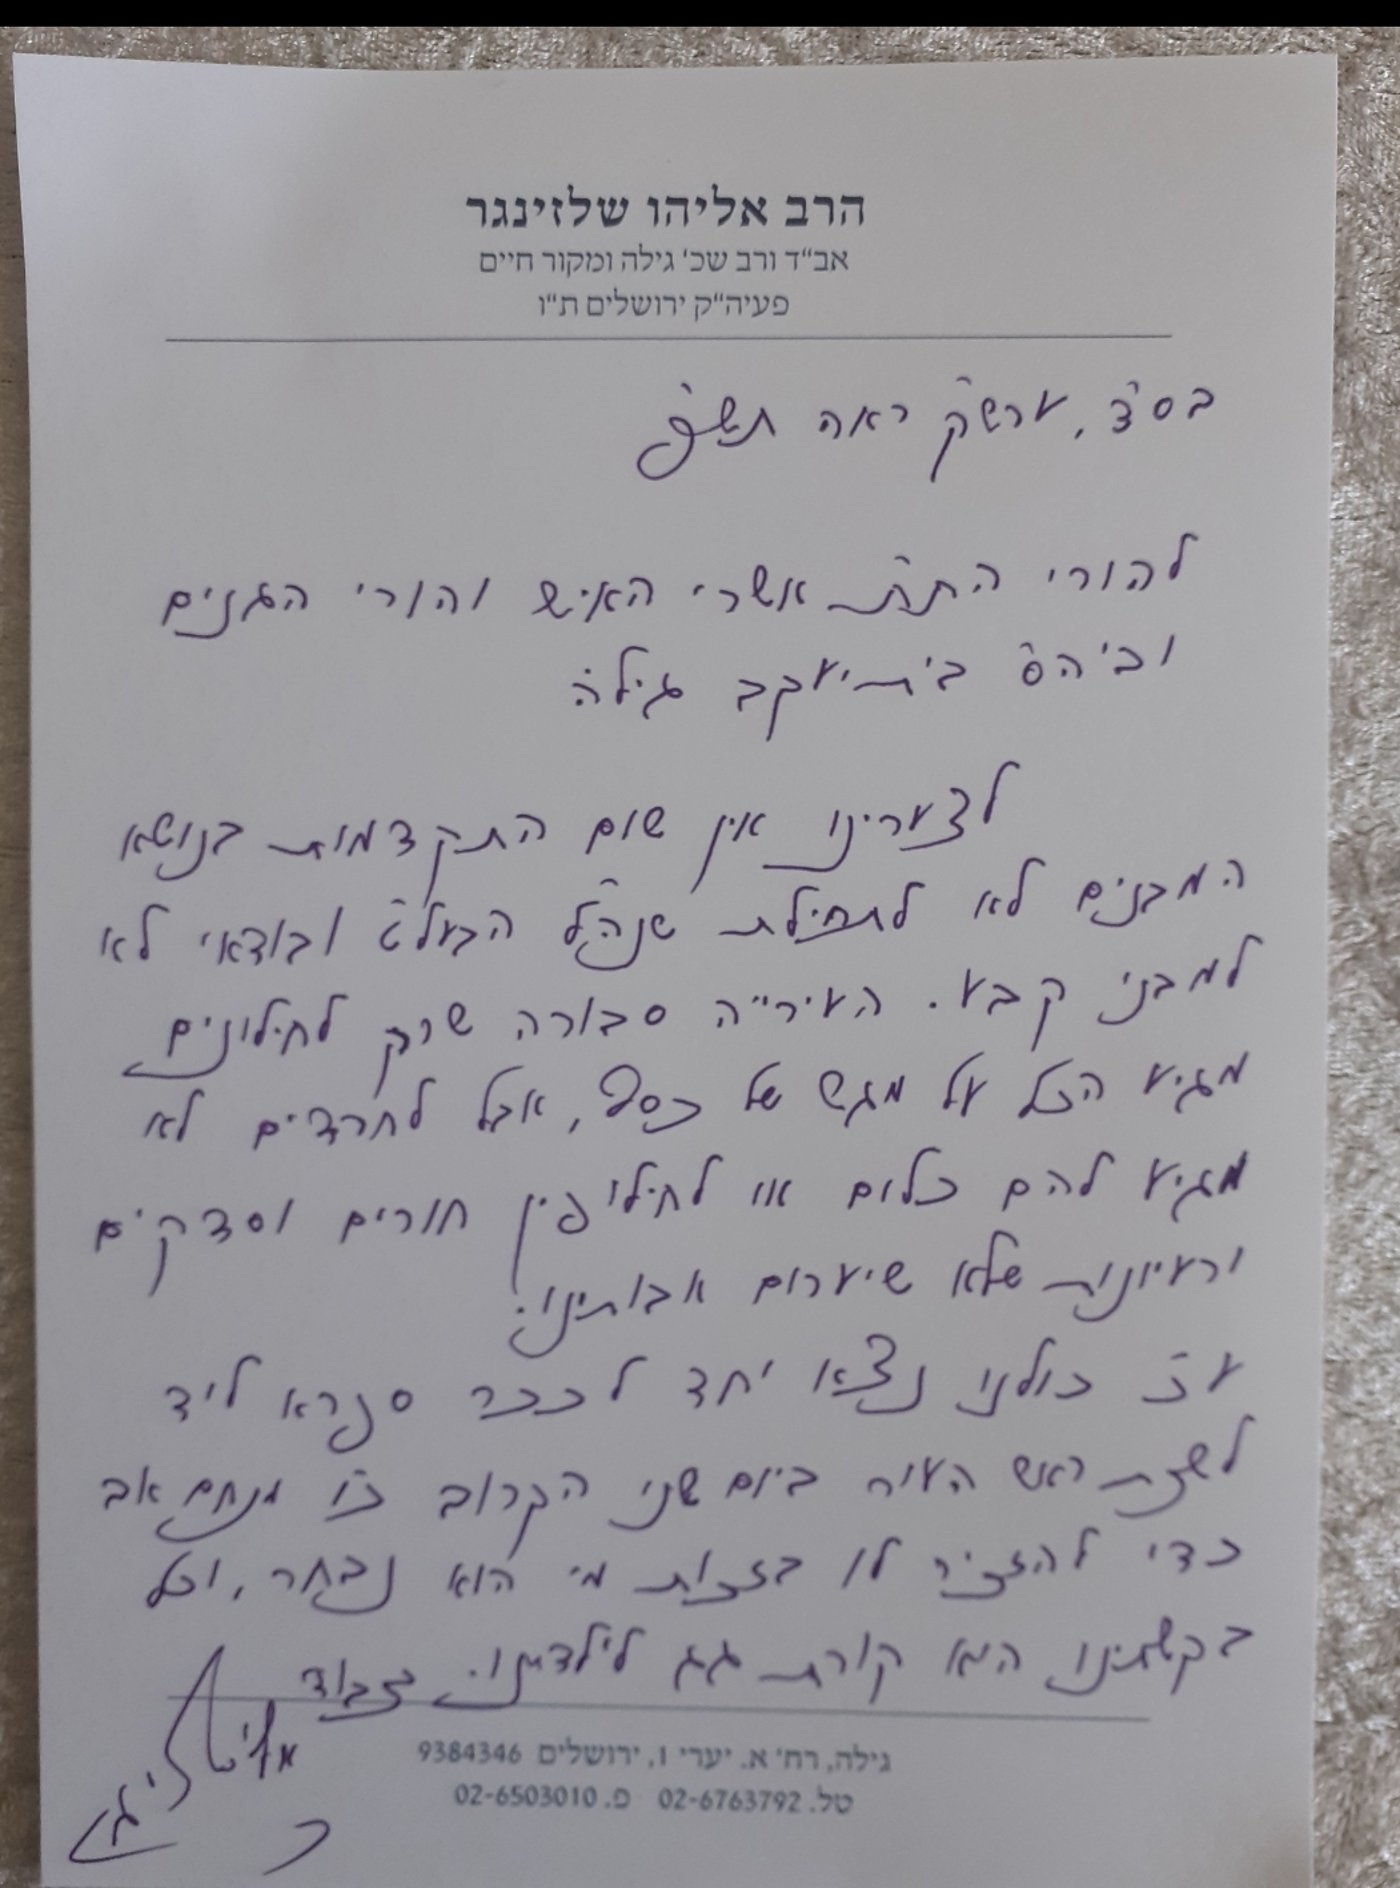 הרב אליהו שלזינגר
אב"ד ורב שכ' גילה ומקור חיים
פעיה"ק ירושלים ת"ו
בס"ד, ערש"ק ראה תש"פ
להורי הת"ת אשרי האיש והורי הגנים
וביה"ס בית יעקב גילה
לצערינו אין שום התקדמות בנושא
המבנים לא לתחילת שנה"ל הבעל"ט ובודאי לא
למבני קבע. העירי"ה סבורה שרק לחילונים
מגיע הכל על מגש של כסף, אבל לחרדים לא
מגיע להם כלום או לחילופין חורים וסדקים
ורעיונות שלא שיערום אבותינו.
ע"כ כולנו נצא יחד לככר ספרא ליד
לשכת ראש העיר ביום שני הקרוב כ"ו מנחם אב
כדי להזכיר לו בזכות מי הוא נבחר, וכל
בקשתינו היא קורת גג לילדינו. בכבוד
גילה, רח' א. יערי 1, ירושלים 9384346
טל. 02-6763792 פ. 02-6503010